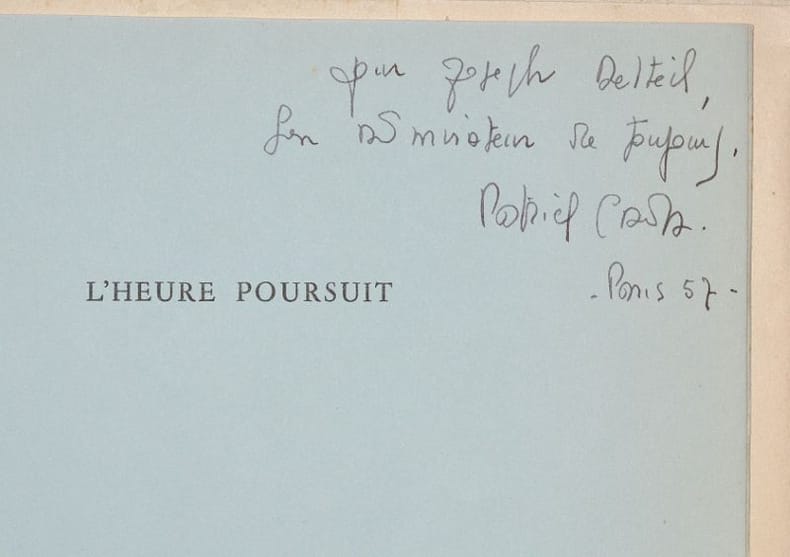 pour Joseph Delteil,
son admirateur de toujours.
Patrick
- Paris 57 -
L'HEURE POURSUIT